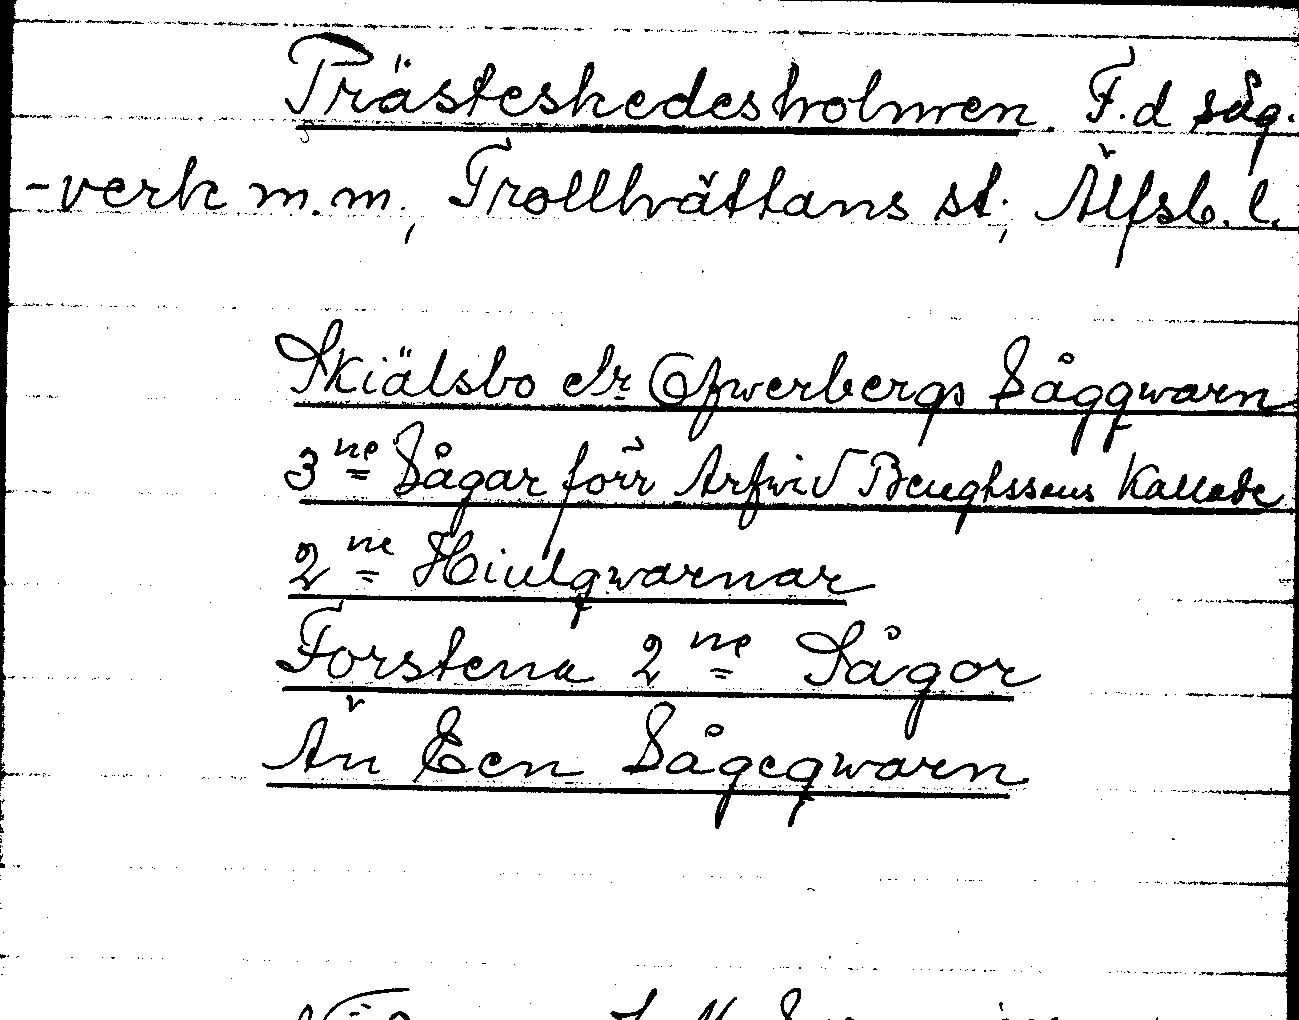 Prästeskedesholmen. F.d såg.
-verk m.m., Trollhvättans st., Älfsb. l.
Skiälsbo elr Ofwerbergs Sågqwarn
3ne Sågar förr Arfwid Benghtssons Kallade
2ne Hiulqwarnar
Forstena 2ne Sågor
Än Een Sågeqwarn